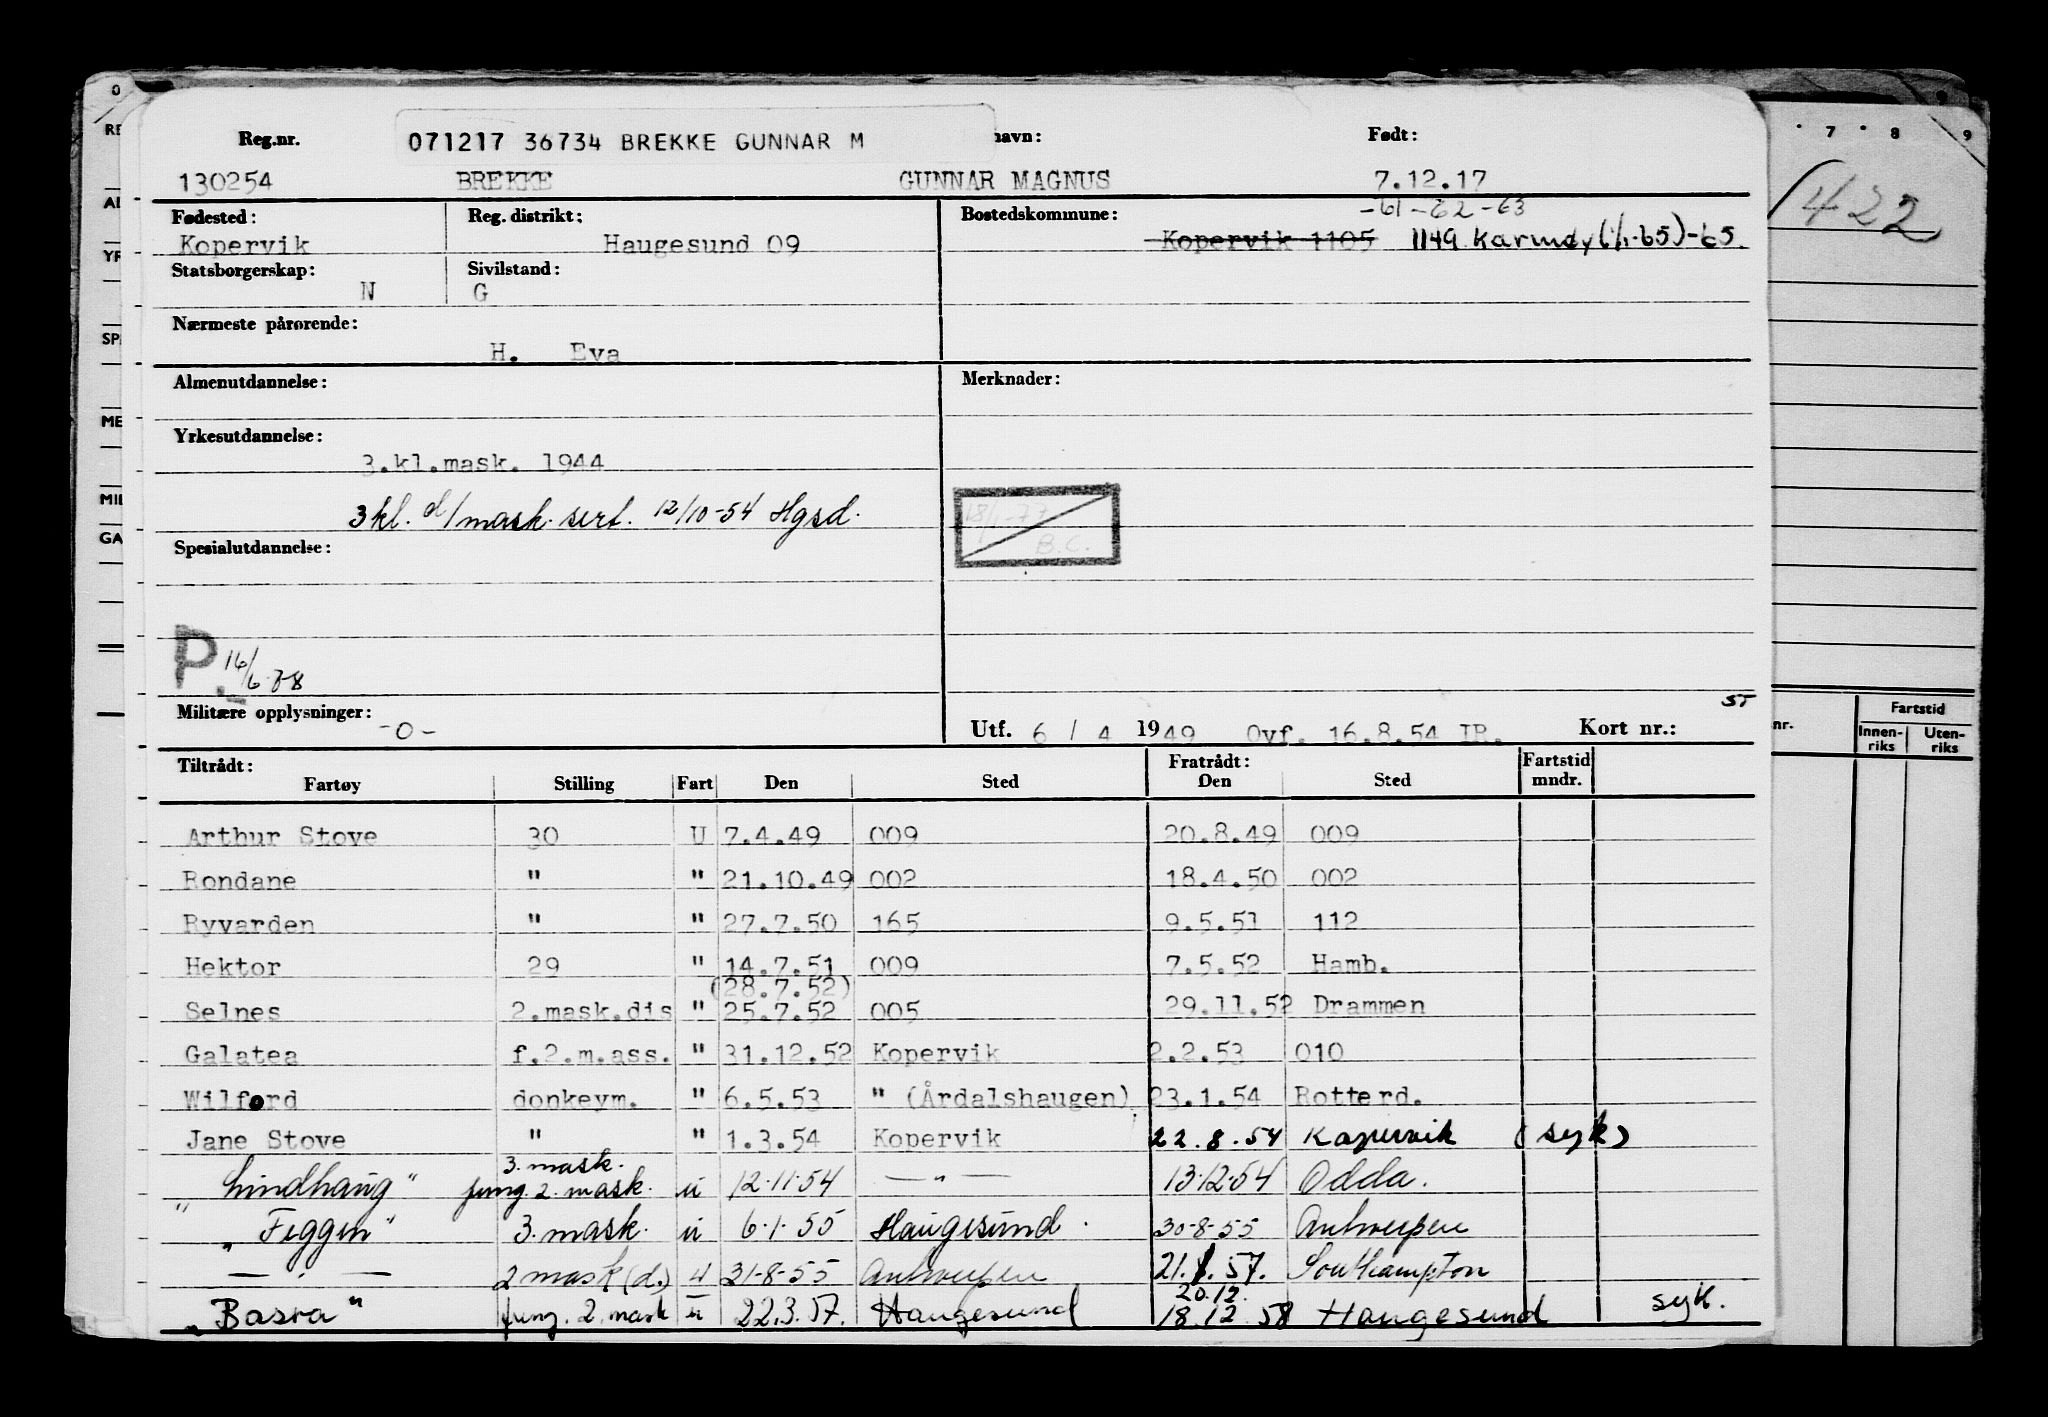 Reg.nr. 071217 36734 BREKKE GUNNAR M navn: Født:
130254 BREKKE GUNNAR MAGNUS 7.12.17
Fødested: Reg. distrikt: Bostedskommune: -61-62-63
Kopervik Haugesund 09 Kopervik 1105 1149 Karmøy (1/1-65)-65.
Statsborgerskap: Sivilstand:
N G
Nærmeste pårørende:
H. Eva
Almenutdannelse: Merknader:
Yrkesutdannelse:
3.kl.mask. 1944
3 kl. d/mask. sert. 12/10-54 Hgsd.
18/1-77
B.C.
Spesialutdannelse:
P. 16/6-78
Militære opplysninger:
-0-
Utf. 6 / 4 1949 Ovf. 16.8.54 IR. Kort nr.: ST
Tiltrådt: Fratrådt: Fartstid
Fartøy Stilling Fart Den Sted Den Sted mndr.
Arthur Stove 30 U 7.4.49 009 20.8.49 009
Rondane " " 21.10.49 002 18.4.50 002
Ryvarden " " 27.7.50 165 9.5.51 112
Hektor 29 " 14.7.51 009 7.5.52 Hamb.
(28.7.52)
Selnes 2.mask.dis " 25.7.52 005 29.11.52 Drammen
Galatea f.2.m.ass. " 31.12.52 Kopervik 2.2.53 010
Wilford donkeym. " 6.5.53 " (Årdalshaugen) 23.1.54 Rotterd.
Jane Stove " " 1.3.54 Kopervik 22.8.54 Kopervik (syk)
3. mask.
"Lindhaug" fung. 2. mask. u 12.11.54 — " — 13.12.54 Odda.
"Feggen" 3. mask. u 6.1.55 Haugesund. 30-8-55 Antwerpen
— " — 2 mask (d.) u 31-8-55 Antwerpen 21.1.57. Southampton
20.12.
"Basra" fung. 2. mask u 22.3.57. Haugesund 18.12.58 Haugesund syk.
7 8 9
1422
nr. Fartstid
Innen-
riks Uten-
riks